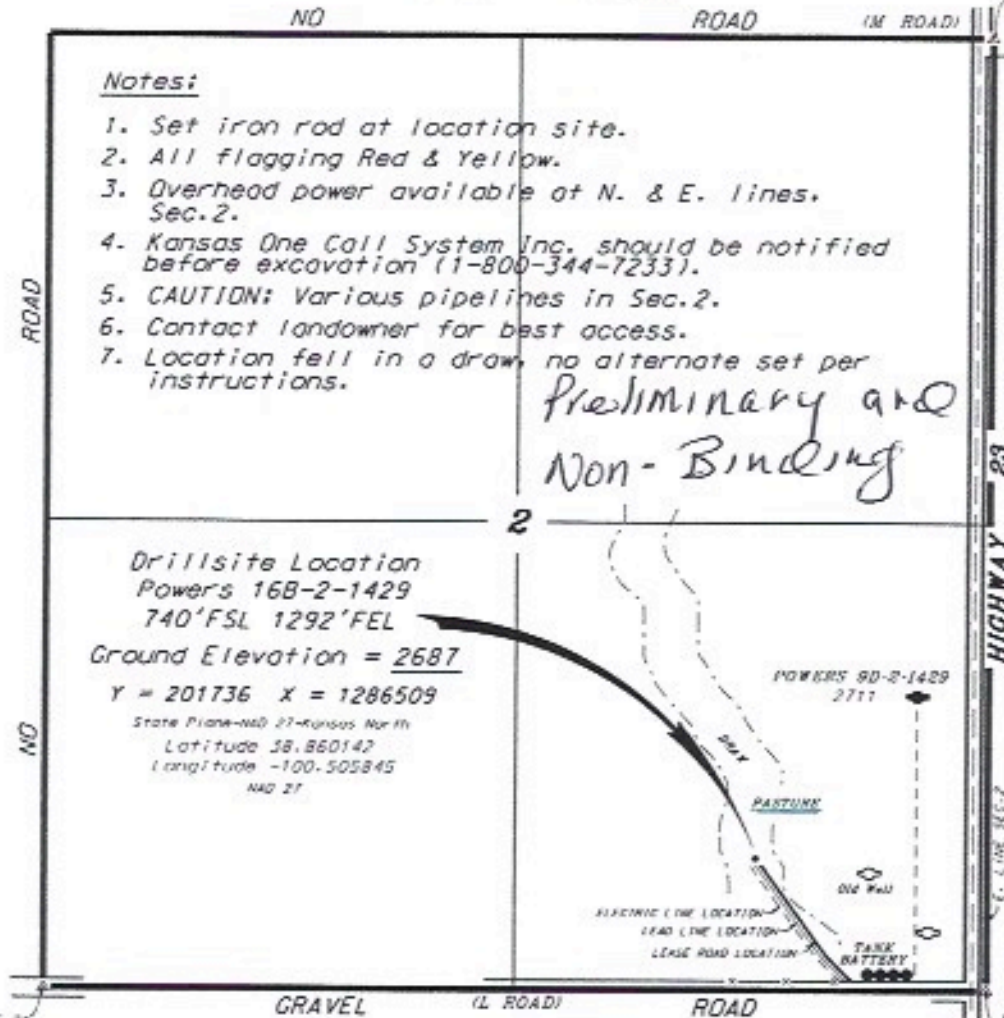 NO ROAD (M ROAD)
Notes:
1. Set iron rod at location site.
2. All flagging Red & Yellow.
3. Overhead power available at N. & E. lines.
Sec.2.
4. Kansas One Call System Inc. should be notified
before excavation (1-800-344-7233).
5. CAUTION: Various pipelines in Sec.2.
6. Contact landowner for best access.
7. Location fell in a draw, no alternate set per
instructions.
Preliminary and
Non-Binding
NO ROAD
2
HIGHWAY 23
Drillsite Location
Powers 16B-2-1429
740'FSL 1292'FEL
Ground Elevation = 2687
Y = 201736 X = 1286509
State Plane-NAD 27-Kansas North
Latitude 38.860142
Longitude -100.505845
NAD 27
POWERS 9D-2-1429
2711
DRAW
PASTURE
Old Well
ELECTRIC LINE LOCATION
LEAD LINE LOCATION
LEASE ROAD LOCATION
TANK
BATTERY
E. LINE SEC.2
GRAVEL (L ROAD) ROAD